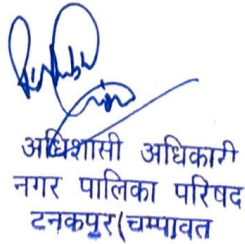 अधिशासी अधिकारी
नगर पालिका परिषद
टनकपुर(चम्पावत